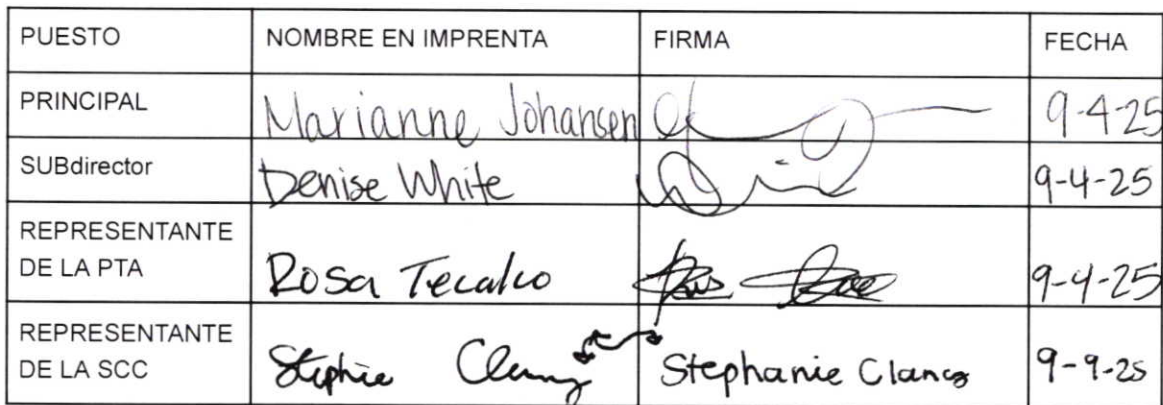 PUESTO NOMBRE EN IMPRENTA FIRMA FECHA
PRINCIPAL Marianne Johansen 9-4-25
SUBdirector Denise White 9-4-25
REPRESENTANTE
DE LA PTA Rosa Tecalco 9-4-25
REPRESENTANTE
DE LA SCC Stephanie Clancy 9-9-25